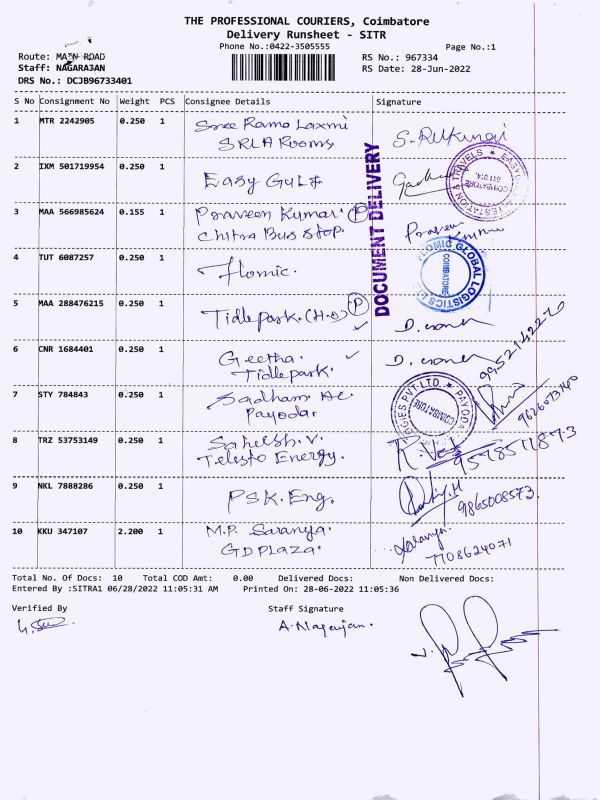 THE PROFESSIONAL COURIERS, Coimbatore
Delivery Runsheet - SITR
Phone No.:0422-3505555
Page No.:1
Route: MAIN ROAD
RS No.: 967334
Staff: NAGARAJAN
RS Date: 28-Jun-2022
DRS No.: DCJB96733401
S No Consignment No Weight PCS Consignee Details Signature
1 MTR 2242905 0.250 1 Sree Rama Laxmi
SRLA Rooms
2 IXM 501719954 0.250 1 Easy Gulf
3 MAA 566985624 0.155 1 Praveen Kumar. P Praveen
Chitra Bus Stop. Kumar
4 TUT 6087257 0.250 1 Flomic.
5 MAA 288476215 0.250 1 Tidlepark.(H.O) P
6 CNR 1684401 0.250 1 Geetha.
Tidlepark.
9952142270
7 STY 784843 0.250 1 Sadham
Payoda. 9626073140
8 TRZ 53753149 0.250 1 Satheesh.V.
Telesto Energy. 9578511873
9 NKL 7888286 0.250 1 PSK.Eng. 9865008573.
10 KKU 347107 2.200 1 M.P. Saranya. Saranya.
GD PLAZA. 7708624071
DOCUMENT DELIVERY
COIMBATORE
641 014.
FLOMIC GLOBAL LOGISTICS
COIMBATORE
PVT LTD. ★ PAYODA
COIMBATORE
Total No. Of Docs: 10 Total COD Amt: 0.00 Delivered Docs: Non Delivered Docs:
Entered By :SITRA1 06/28/2022 11:05:31 AM Printed On: 28-06-2022 11:05:36
Verified By Staff Signature
A. Nagarajan.